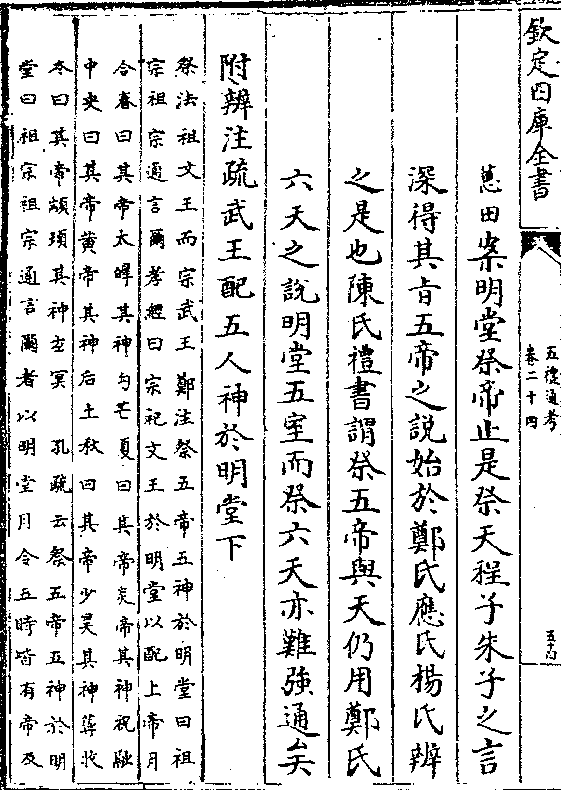 欽定四庫全書
五禮通考
卷二十四
五十四
蕙田案明堂祭帝止是祭天程子朱子之言
深得其旨五帝之說始於鄭氏應氏楊氏辨
之是也陳氏禮書謂祭五帝與天仍用鄭氏
六天之說明堂五室而祭六天亦難強通矣
附辨注疏武王配五人神於明堂下
祭法祖文王而宗武王鄭注祭五帝五神於明堂曰祖
宗祖宗通言爾孝經曰宗祀文王於明堂以配上帝月
令春曰其帝太皥其神勾芒夏曰其帝炎帝其神祝融
中央曰其帝黄帝其神后土秋曰其帝少昊其神蓐收
冬曰其帝顓頊其神玄冥　孔疏云祭五帝五神於明
堂曰祖宗祖宗通言爾者以明堂月令五時皆有帝及